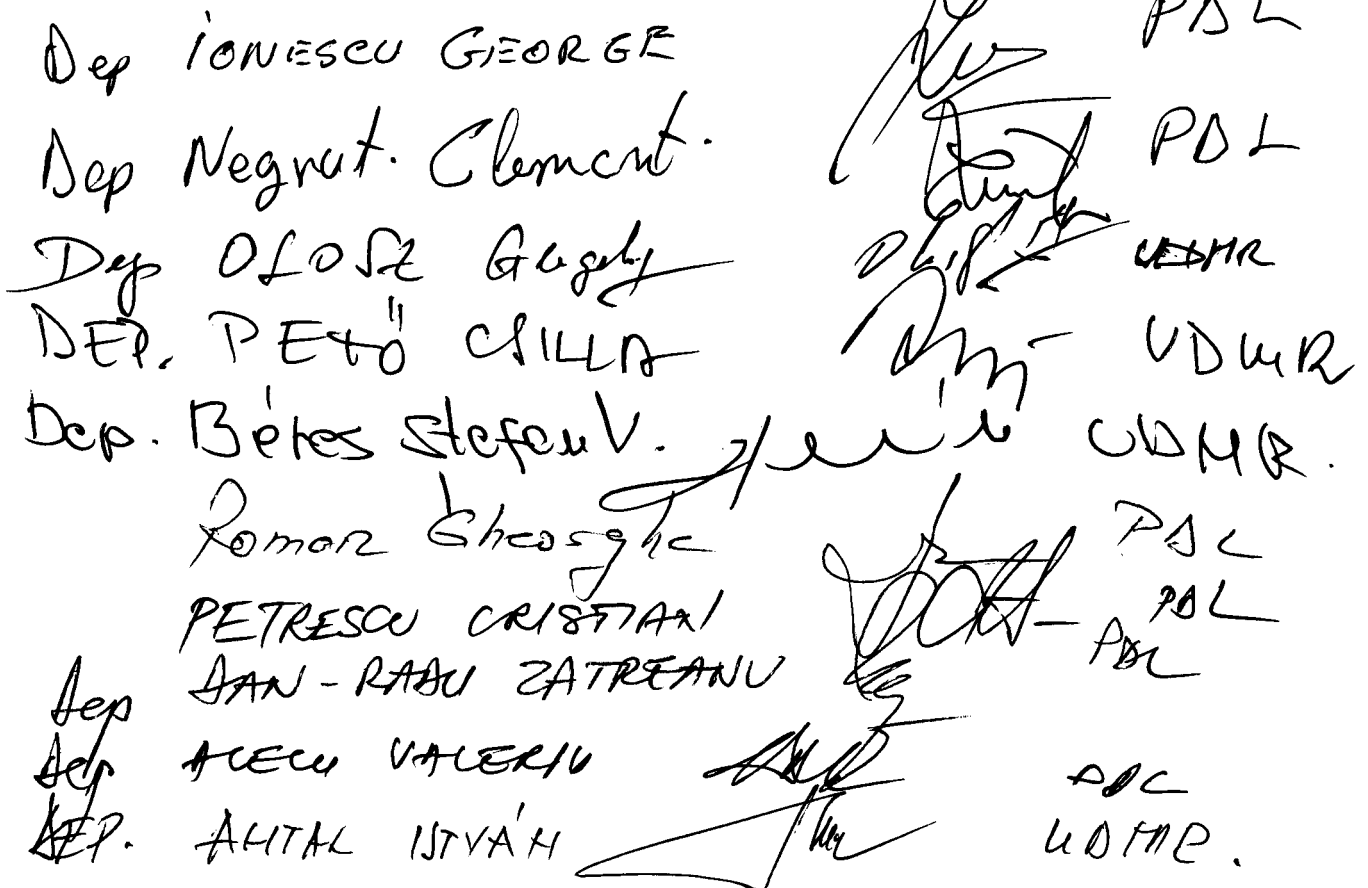 Dep IONESCU GEORGE PDL
Dep Negrut. Clement. PDL
Dep OLOSZ Gergely UDMR
DEP. PETŐ CSILLA UDMR
Dep. Béres Stefan V. UDMR.
Roman Gheorghe PDL
PETRESCU CRISTIAN PDL
Dep DAN-RADU ZATREANU PDL
Dep ALECU VALERIU PDL
DEP. ANTAL ISTVÁN UDMR.